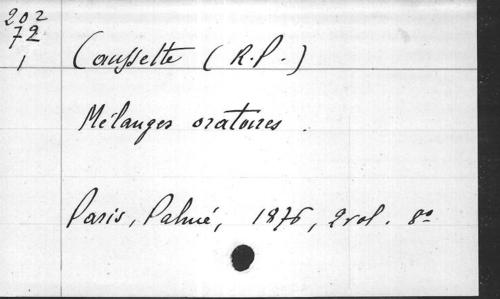 202
72
1
Caussette (R.P.)
Mélanges oratoires.
Paris, Palmé, 1876, 2 vol. 8º